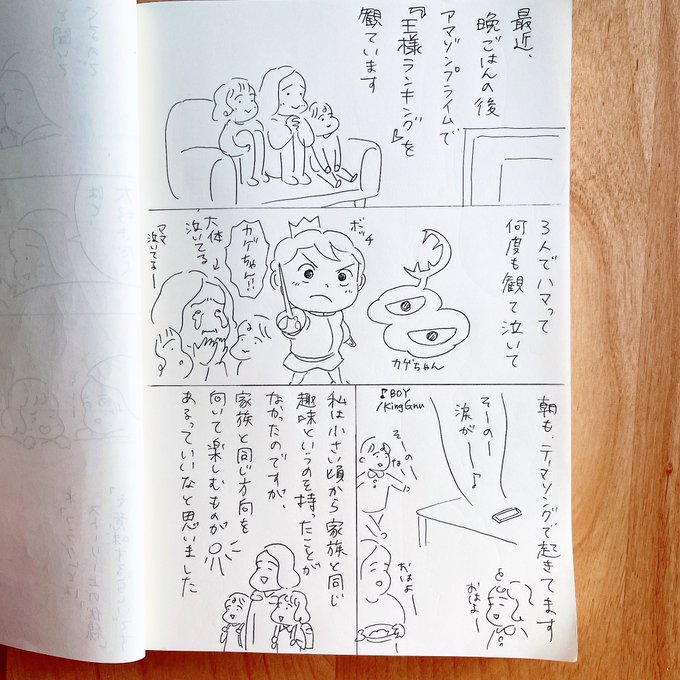 最近、
晩ごはんの後
アマゾンプライムで
『王様ランキング』を
観ています
3人でハマって
何度も観て泣いて
カゲちゃん
ボッチ
カゲちゃん!!
大体
泣いてる
ママ
泣いてるー
朝も、テーマソングで起きてます
そーのー
涙がー♪
♪BOY
/King Gnu
そーのー
おはよー
おはよー
私は小さい頃から家族と同じ
趣味というのを持ったことが
なかったのですが、
家族と同じ方向を
向いて楽しむものが
あるっていいなと思いました